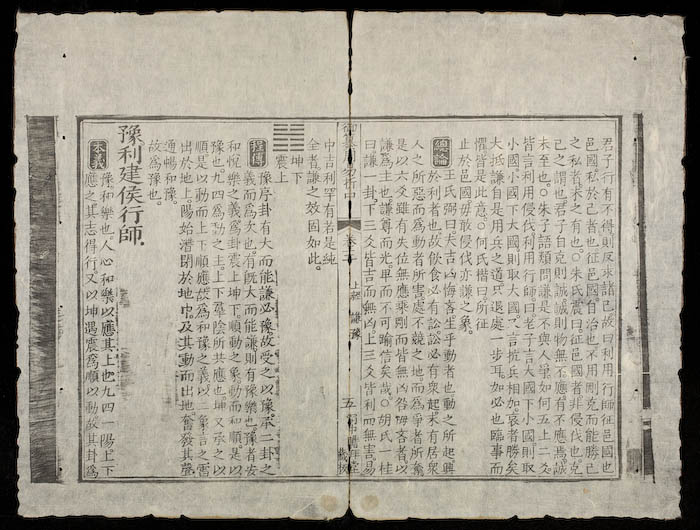 君子行有不得則反求諸己故曰利用行師征邑國也
邑國私於己者也征邑國自治也不用剛克而能勝己
之私者未之有也。○朱氏震曰征邑國者非侵伐也克
己之謂也君子自克則誠誠則物無不應有不應焉誠
未至也。○朱子語類問謙是不與人爭如何五上二爻
皆言利用侵伐利用行師曰老子言大國下小國則取
小國小國下大國則取大國又言抗兵相加。哀者勝矣
大抵謙自是用兵之道只退處一步耳如必也臨事而
懼皆是此意。○何氏楷曰所征
止於邑國毋敢侵伐亦謙之象。
總論 王氏弼曰夫吉凶悔吝生乎動者也動之所起興
於利者也故飲食必有訟訟必有衆起。未有居衆
人之所惡而爲動者所害處不競之地而爲爭者所奪
是以六爻雖有失位無應乘剛而皆無凶咎悔吝者以
謙爲主也謙尊而光卑而不可踰信矣哉○胡氏一桂
曰謙一卦。下三爻皆吉而無凶上三爻皆利而無害易
御 折中 卷三 上經 謙豫 五
中吉利罕有若是純
全者謙之效固如此。
坤下
震上
程傳 豫序卦有大而能謙必豫故受之以豫。承二卦之
義而爲次也有既大而能謙則有豫樂也豫者安
和悅樂之義爲卦震上坤下。順動之象。動而和順是以
豫也九四爲動之主。上下羣陰所共應也坤又承之以
順是以動而上下順應故爲和豫之義以二象言之雷
出於地上。陽始潛閉於地中。及其動而出地。奮發其聲
通暢和豫。
故爲豫也。
豫利建侯行師.
本義 豫和樂也。人心和樂以應其上也九四一陽上下
應之其志得行又以坤遇震爲順以動故其卦爲